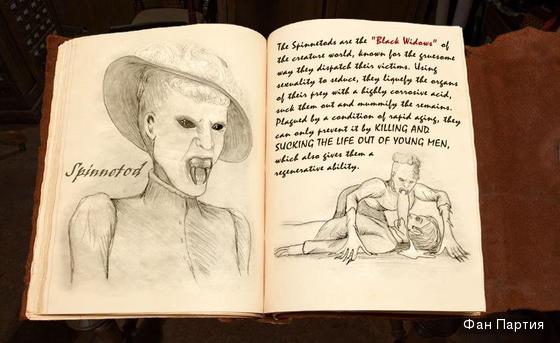 Spinnetod
The Spinnetods are the "Black Widows" of
the creature world, known for the gruesome
way they dispatch their victims. Using
sexuality to seduce, they liquefy the organs
of their prey with a highly corrosive acid,
suck them out and mummify the remains.
Plagued by a condition of rapid aging, they
can only prevent it by KILLING AND
SUCKING THE LIFE OUT OF YOUNG MEN,
which also gives them a
regenerative ability.
Фан Партия